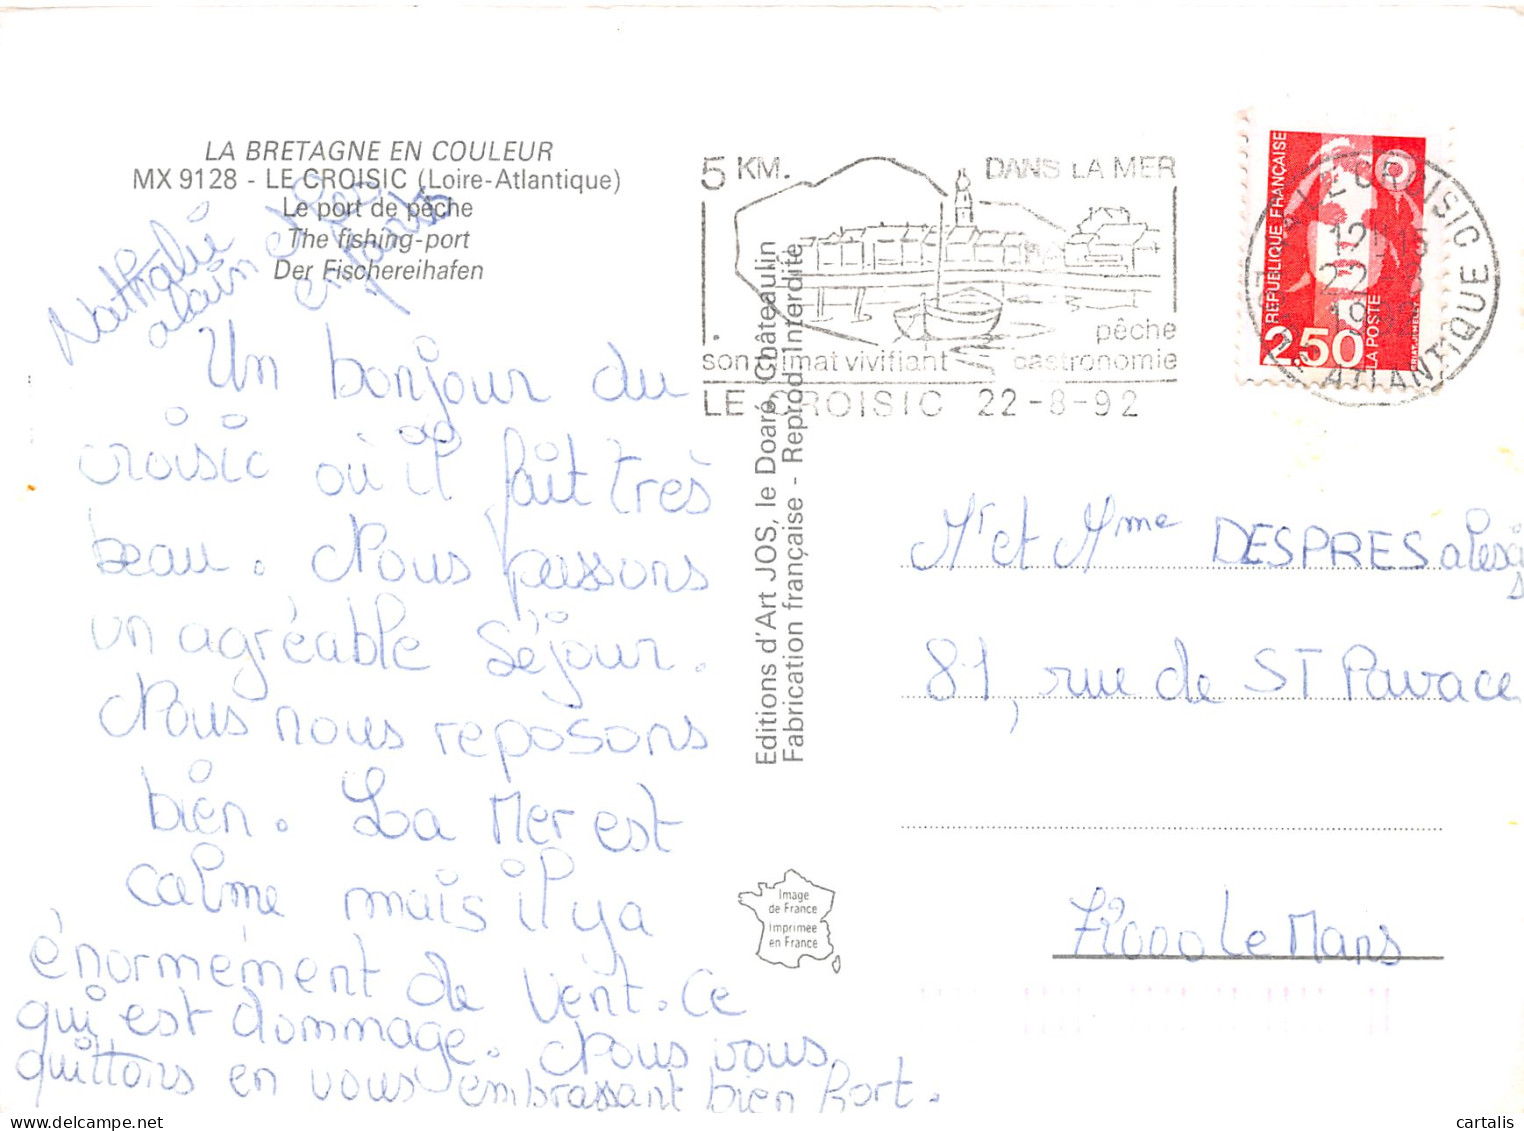 LA BRETAGNE EN COULEUR
MX 9128 - LE CROISIC (Loire-Atlantique)
Le port de pêche
The fishing-port
Der Fischereihafen
Nathalie
alain
enfants
Un bonjour du
croisic où il fait très
beau. Nous passons
un agréable séjour.
Nous nous reposons
bien. La Mer est
calme mais il y a
énormément de vent. Ce
qui est dommage. Nous vous
quittons en vous embrassant bien fort.
Editions d'Art JOS, le Doaré, Châteaulin
Fabrication française - Reprod. Interdite
5 KM. DANS LA MER
pêche
son climat vivifiant gastronomie
LE CROISIC 22-8-92
REPUBLIQUE FRANÇAISE
2.50
LA POSTE
LE CROISIC
22-8
1992
ATLANTIQUE
Mr et Mme DESPRES alexis
81, rue de ST Pavace
72000 Le Mans
Image
de France
Imprimée
en France
cartalis
delcampe.net